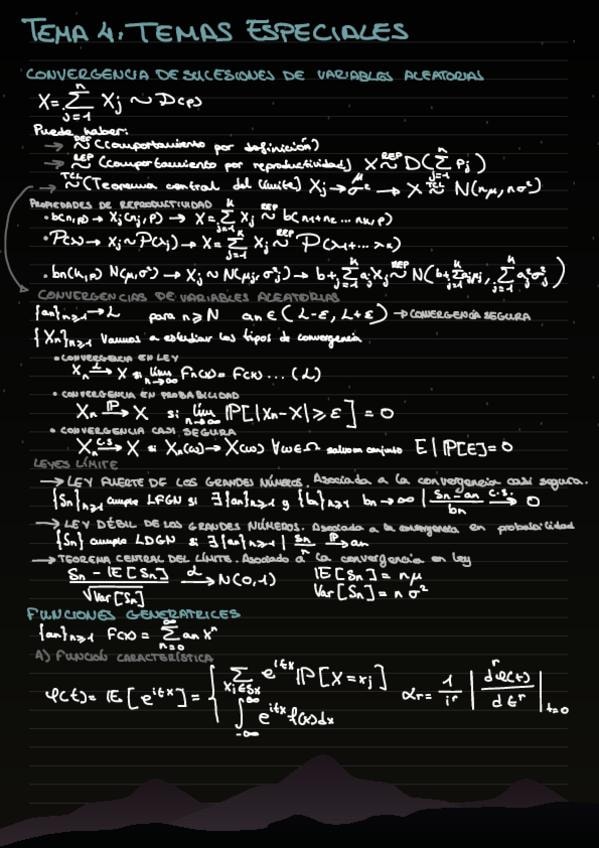 TEMA 4. TEMAS ESPECIALES
CONVERGENCIA DE SUCESIONES DE VARIABLES ALEATORIAS
X = Σ_{j=1}^{n} X_j ~ D(p)
Puede haber:
→ ~^{DEF} (comportamiento por definición)
→ ~^{REP} (comportamiento por reproductividad) X ~^{REP} D(Σ_{j=1}^{n} p_j)
→ ~^{TCL} (Teorema central del límite) X_j → μ, σ² → X ~^{TCL} N(nμ, nσ²)
PROPIEDADES DE REPRODUCTIVIDAD
• b(n,p) → X_j(n_j, p) → X = Σ_{j=1}^{k} X_j ~^{REP} b(n_1+n_2 ... n_k, p)
• P(λ) → X_j ~ P(λ_j) → X = Σ_{j=1}^{k} X_j ~^{REP} P(λ_1+... λ_k)
• bn(k,p) N(μ,σ²) → X_j ~ N(μ_j, σ²_j) → b + Σ_{j=1}^{k} a_j X_j ~^{REP} N(b + Σ_{j=1}^{k} a_j μ_j, Σ_{j=1}^{k} a_j² σ_j²)
CONVERGENCIAS DE VARIABLES ALEATORIAS
{an}_{n≥1} → L para n ≥ N an ∈ (L-ε, L+ε) → CONVERGENCIA SEGURA
{Xn}_{n≥1} Vamos a estudiar los tipos de convergencia
• CONVERGENCIA EN LEY
X_n →^{L} X si lim_{n→∞} Fn(x) = F(x) ... (L)
• CONVERGENCIA EN PROBABILIDAD
X_n →^{P} X si lim_{n→∞} P[|Xn-X| ≥ ε] = 0
• CONVERGENCIA CASI SEGURA
X_n →^{c.s} X si X_n(ω) → X(ω) ∀ω∈Ω salvo un conjunto E | P[E] = 0
LEYES LÍMITE
→ LEY FUERTE DE LOS GRANDES NÚMEROS. Asociada a la convergencia casi segura.
{Sn}_{n≥1} cumple LFGN si ∃ {an}_{n≥1} y {bn}_{n≥1} bn → ∞ | (Sn - an)/bn →^{c.s.} 0
→ LEY DÉBIL DE LOS GRANDES NÚMEROS. Asociada a la convergencia en probabilidad
{Sn} cumple LDGN si ∃ {an}_{n≥1} | Sn/n →^{P} an
→ TEOREMA CENTRAL DEL LÍMITE. Asociado a la convergencia en ley
(Sn - E[Sn])/√Var[Sn] →^{d} N(0,1) E[Sn] = nμ
Var[Sn] = nσ²
FUNCIONES GENERATRICES
{an}_{n≥1} F(x) = Σ_{n=0}^{∞} an xⁿ
A) FUNCIÓN CARACTERÍSTICA
φ(t) = E[e^{itx}] = { Σ_{x_j∈Sx} e^{itx} P[X = x_j] α_r = 1/i^r | d^r φ(t)/dt^r |_{t=0}
∫_{-∞}^{∞} e^{itx} f(x)dx